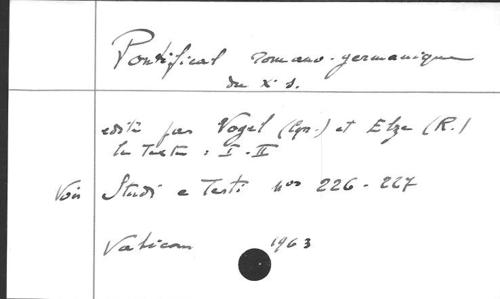 Pontifical romano-germanique
du Xe s.
édité par Vogel (Cyr.) et Elze (R.)
le Texte : I-II
Voir Studi e Testi nos 226-227
Vatican 1963